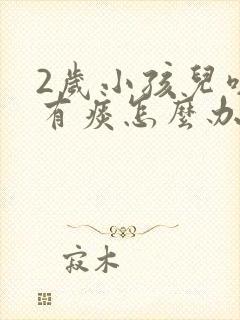 2歲小孩兒咳
有痰怎麼办
寂木